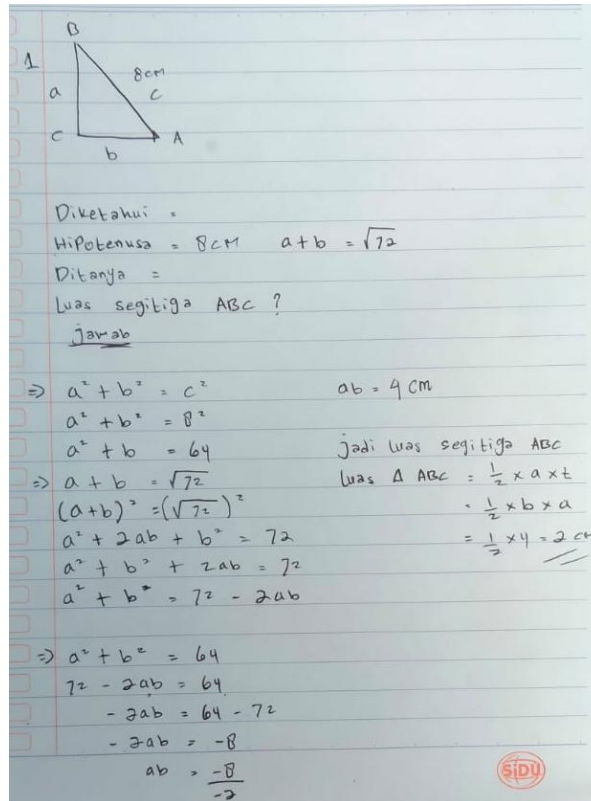 1
B
a
8cm
c
C
A
b
Diketahui =
Hipotenusa = 8cm a+b = √72
Ditanya =
Luas segitiga ABC ?
jawab
=> a² + b² = c²
a² + b² = 8²
a² + b = 64
=> a + b = √72
(a+b)² = (√72)²
a² + 2ab + b² = 72
a² + b² + 2ab = 72
a² + b² = 72 - 2ab
=> a² + b² = 64
72 - 2ab = 64
- 2ab = 64 - 72
- 2ab = -8
ab = -8/-2
ab = 4 cm
jadi luas segitiga ABC
Luas Δ ABC = 1/2 x a x t
= 1/2 x b x a
= 1/2 x 4 = 2 cm
SiDU